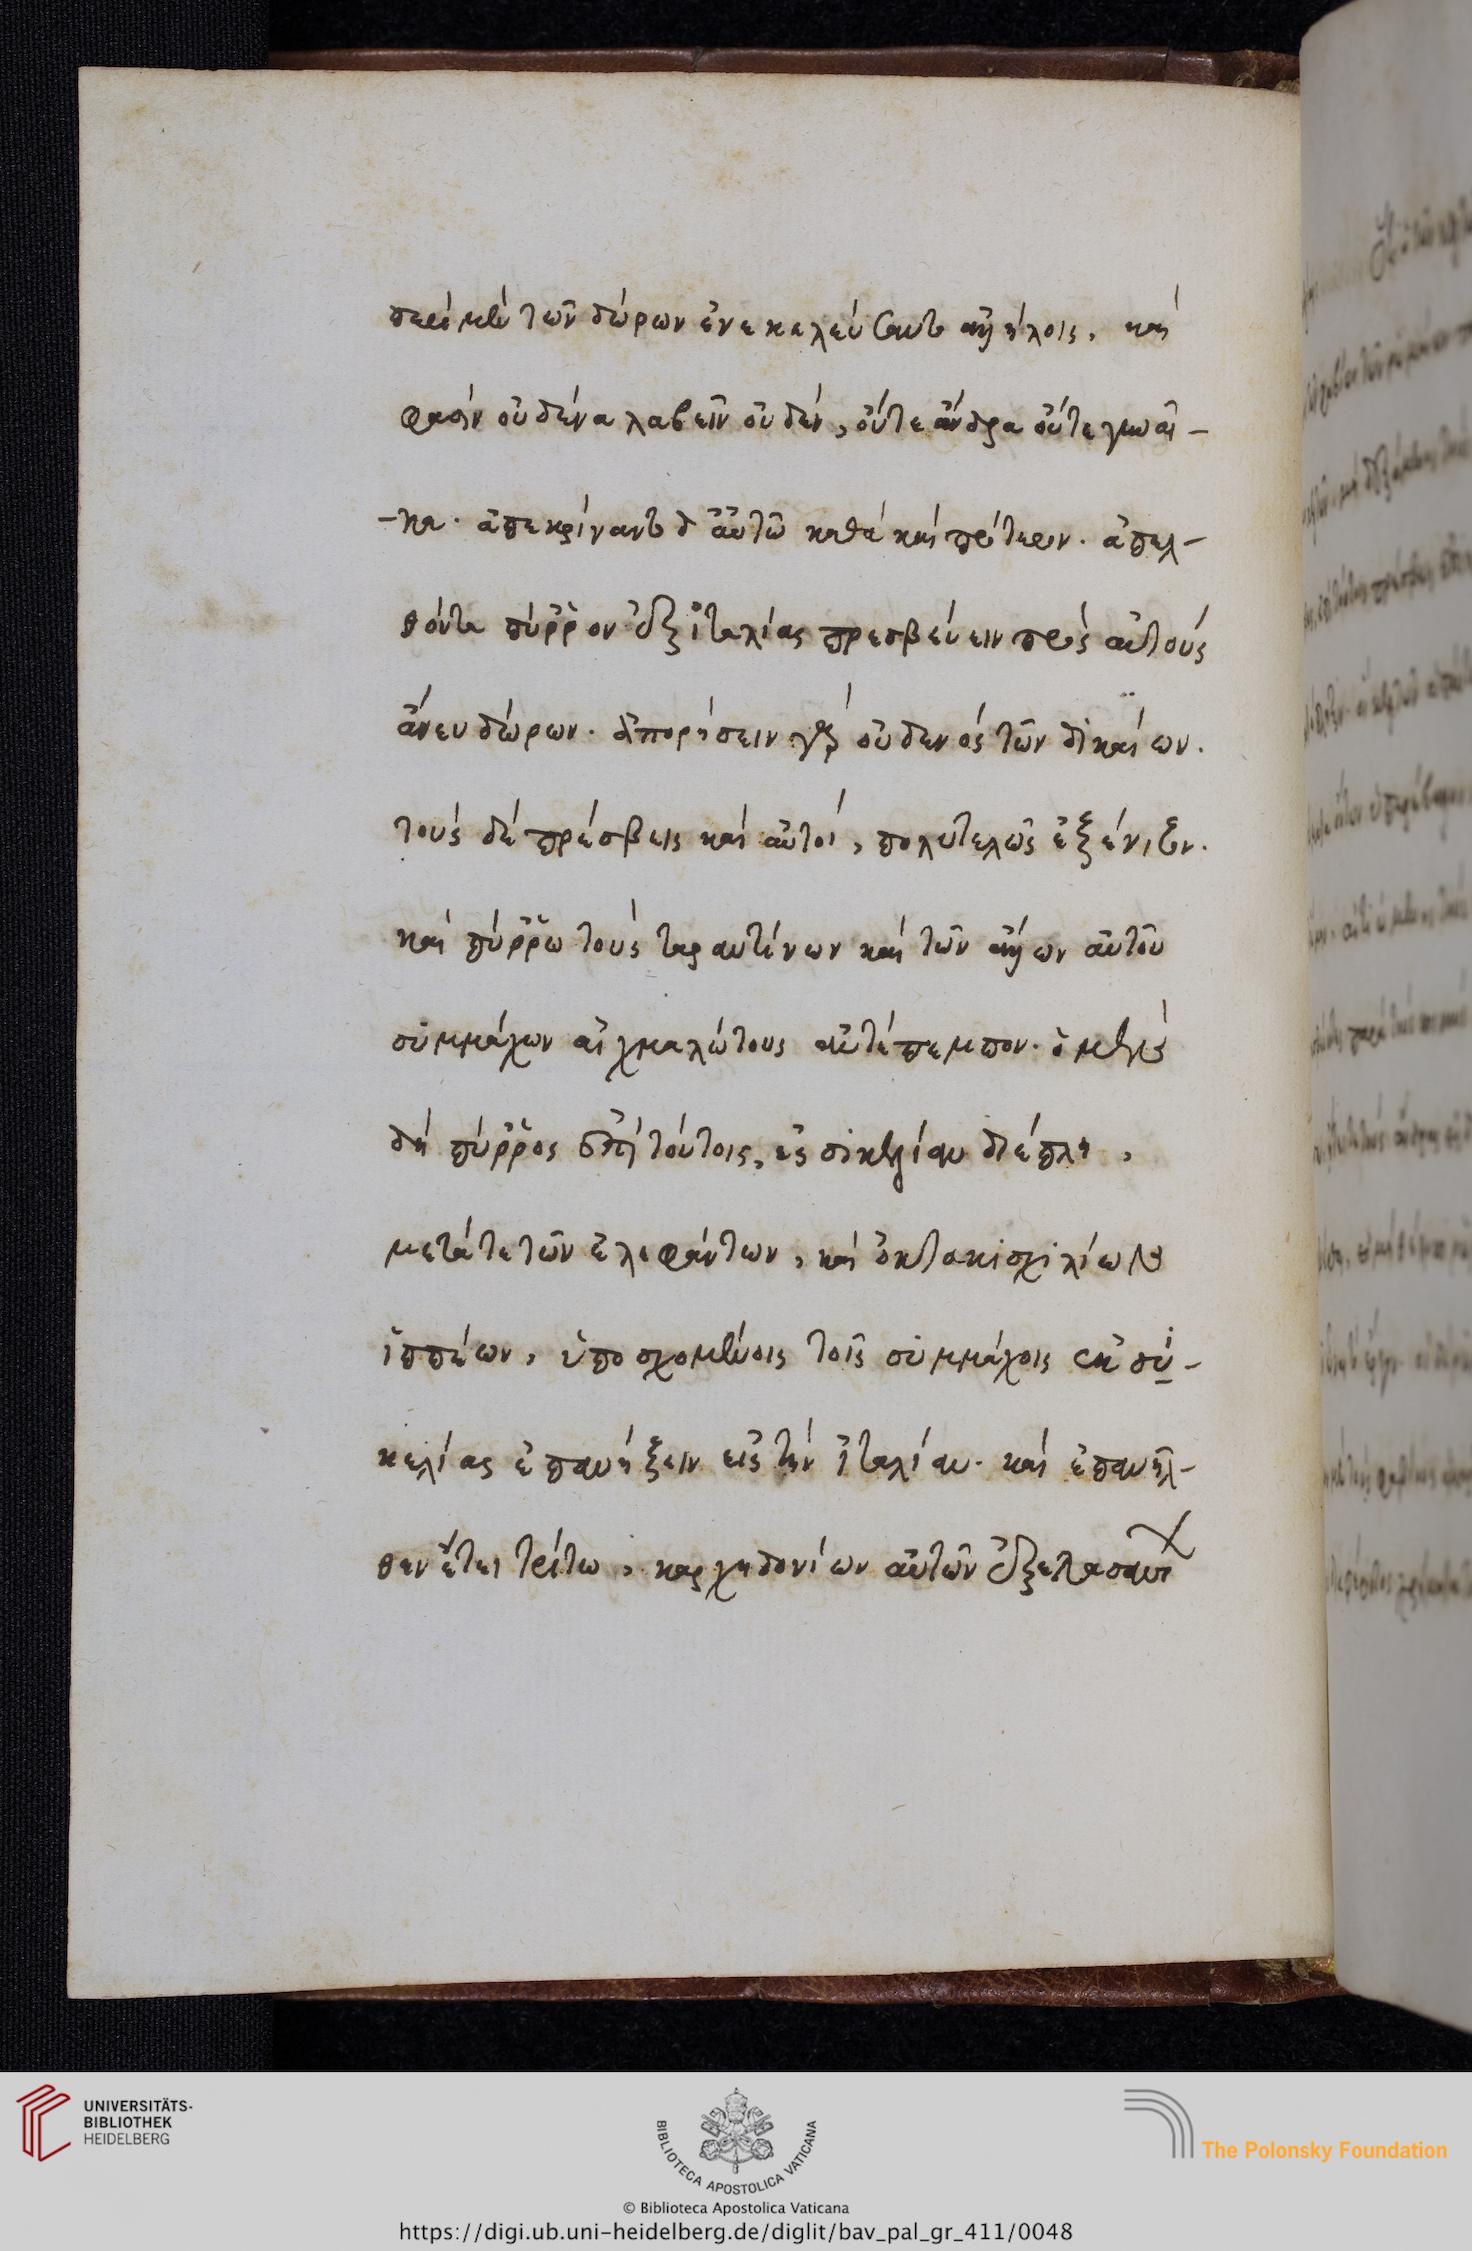 περὶ μὲν τῶν δώρων ἐνεκελεύσαντο ἀλλήλοις. καὶ
φασὶν οὐδένα λαβεῖν οὐδέν, οὔτε ἄνδρα οὔτε γυναῖ-
-κα. ἀπεκρίναντο δ' αὐτῶ καθὰ καὶ πρότερον. ἀπελ-
θόντα πύρρον ἐξ ἰταλίας πρεσβεύειν πρὸς αὐτοὺς
ἄνευ δώρων. ἀπορήσειν γὰρ οὐδενὸς τῶν δικαίων.
τοὺς δὲ πρέσβεις καὶ αὐτοὶ, πολυτελῶς ἐξένιζον.
καὶ πύρρω τοὺς ταραντίνων καὶ τῶν ἄλλων αὐτοῦ
συμμάχων αἰχμαλώτους ἀντέπεμπον. ὁ μὲν
δὴ πύρρος ἐπὶ τούτοις, ἐς σικελίαν διέπλει,
μετά τε τῶν ἐλεφάντων, καὶ ὀκτακισχιλίων
ἱππέων, ὑποσχομένοις τοῖς συμμάχοις ἐκ συ-
κελίας ἐπανήξειν εἰς τὴν ἰταλίαν. καὶ ἐπανῆλ-
θεν ἔτει τρίτω, καρχηδονίων αὐτὸν ἐξελασάντων
UNIVERSITÄTS-
BIBLIOTHEK
HEIDELBERG
BIBLIOTECA APOSTOLICA VATICANA
The Polonsky Foundation
© Biblioteca Apostolica Vaticana
https://digi.ub.uni-heidelberg.de/diglit/bav_pal_gr_411/0048